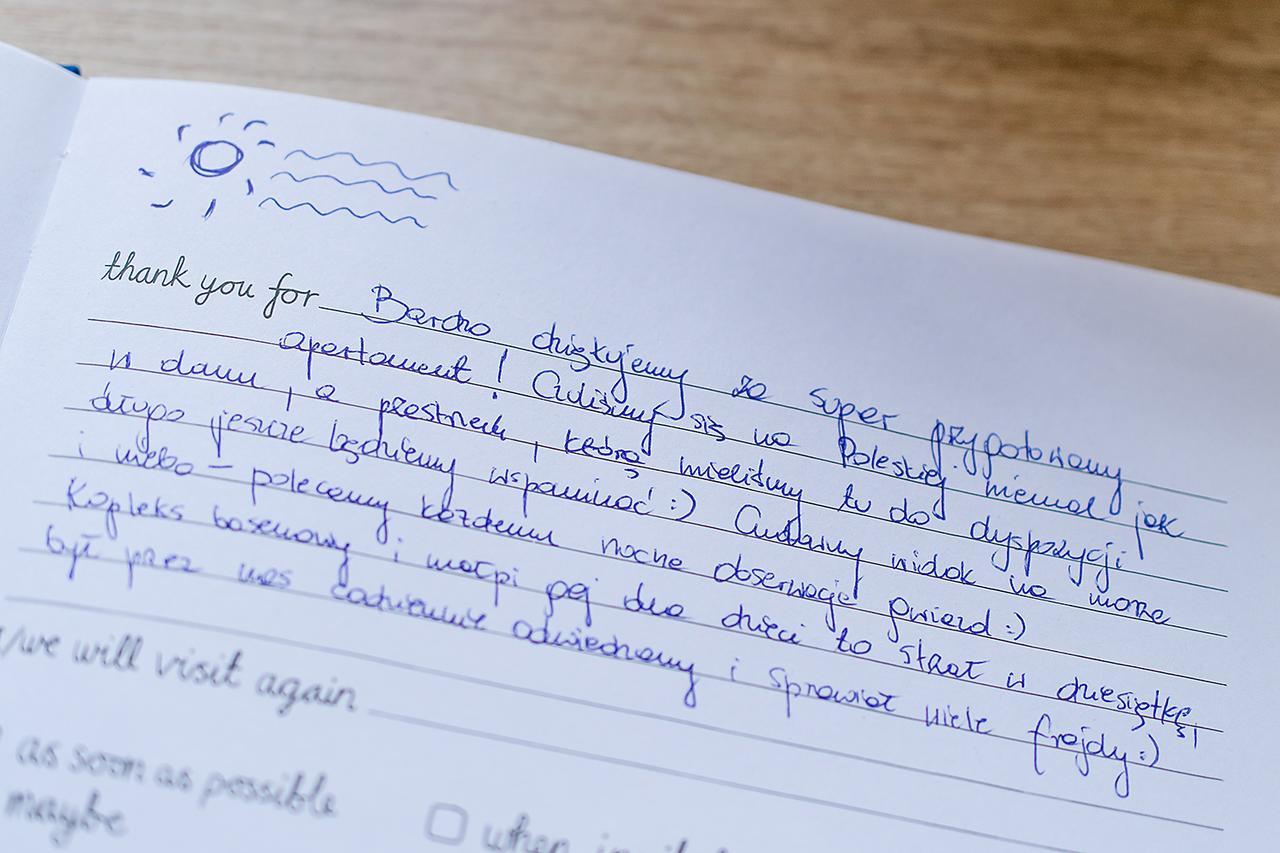 thank you for Bardzo dziękujemy za super przygotowany
apartament! Czuliśmy się na Poleskiej niemal jak
w domu, a przestrzeń, którą mieliśmy tu do dyspozycji
długo jeszcze będziemy wspominać :) Cudowny widok na morze
i niebo - polecamy każdemu nocne obserwacje gwiazd :)
Kopleks basenowy i małpi gaj dla dzieci to strzał w dziesiątkę,
był przez nas codziennie odwiedzany i sprawiał wiele frajdy :)
/we will visit again
as soon as possible
maybe
when